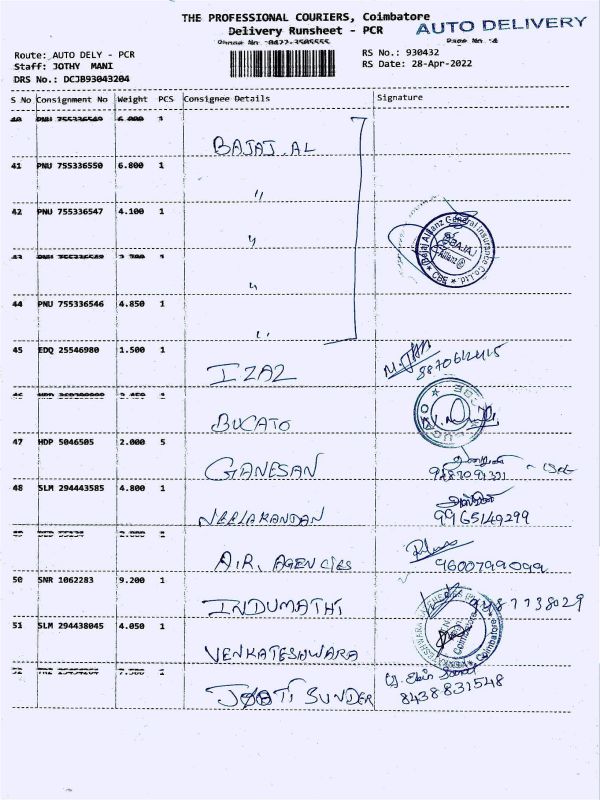 THE PROFESSIONAL COURIERS, Coimbatore
Delivery Runsheet - PCR
AUTO DELIVERY
Phone No :0422-3505555
Page No :4
Route: AUTO DELY - PCR
RS No.: 930432
Staff: JOTHY MANI
RS Date: 28-Apr-2022
DRS No.: DCJB93043204
S No Consignment No Weight PCS Consignee Details Signature
40 PNU 1
BAJAJ AL
41 PNU 755336550 6.800 1
"
42 PNU 755336547 4.100 1
"
Bajaj Allianz General Insurance Co.Ltd. * CBE *
BAJAJ
Allianz
43 1
"
44 PNU 755336546 4.850 1
"
45 EDQ 25546980 1.500 1
IZAZ
8870612415
46 1
BUCATO
47 HDP 5046505 2.000 5
GANESAN
48 SLM 294443585 4.800 1
NEELAKANDAN
9965149299
49 1
AIR. AGENCIES
9600799099
50 SNR 1062283 9.200 1
INDUMATHI
9487738029
51 SLM 294438045 4.050 1
VENKATESHWARA
Coimbatore
52 1
JOOTI SUNDER
8438831548